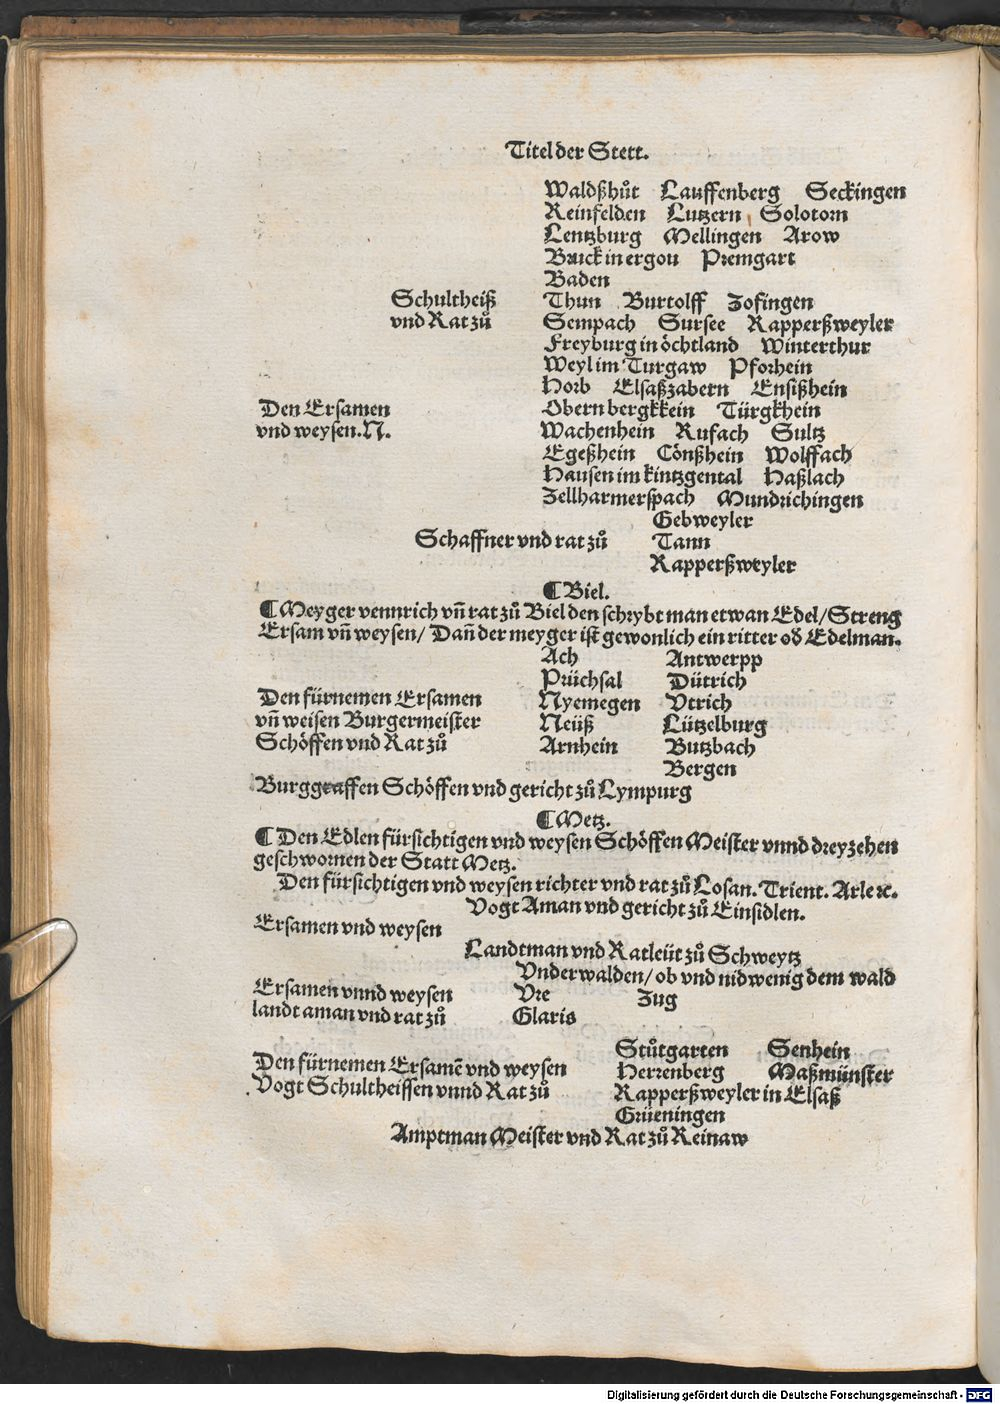 Titel der Stett.
Waldßhůt Lauffenberg Seckingen
Reinfelden Lutzern Solotorn
Lentzburg Mellingen Arow
Bruck in ergou Premgart
Baden
Schultheiß Thun Burtolff Zofingen
vnd Rat zů Sempach Sursee Rapperßweyler
Freyburg in öchtland Winterthur
Weyl im Turgaw Pforhein
Horb Elsaßzabern Ensißhein
Den Ersamen Obern bergkkein Türgkhein
vnd weysen .N. Wachenhein Rufach Sultz
Egeßhein Cönßhein Wolffach
Hausen im kintzgental Haßlach
Zellharmerspach Mundrichingen
Gebweyler
Schaffner vnd rat zů Tann
Rapperßweyler
¶ Biel.
¶ Meyger vennrich vn̄ rat zů Biel den schrybt man etwan Edel/ Streng
Ersam vn̄ weysen/ Dan̄ der meyger ist gewonlich ein ritter od̕ Edelman.
Ach Antwerpp
Prüchsal Dütrich
Den fürnemen Ersamen Nyemegen Vtrich
vn̄ weisen Burgermeister Neüß Lützelburg
Schöffen vnd Rat zů Arnhein Butzbach
Bergen
Burggraffen Schöffen vnd gericht zů Lympurg
¶ Metz.
¶ Den Edlen fürsichtigen vnd weysen Schöffen Meister vnnd dreyzehen
geschwornen der Statt Metz.
Den fürsichtigen vnd weysen richter vnd rat zů Losan. Trient. Arle ꝛc.
Vogt Aman vnd gericht zů Einsidlen.
Ersamen vnd weysen
Landtman vnd Ratleüt zů Schweytz
Vnderwalden/ ob vnd nidwenig dem wald
Ersamen vnnd weysen Vre Zug
landt aman vnd rat zů Glaris
Stůtgarten Senhein
Den fürnemen Ersamē vnd weysen Herrenberg Maßmünster
Vogt Schultheissen vnnd Rat zů Rapperßweyler in Elsaß
Grüeningen
Amptman Meister vnd Rat zů Reinaw
Digitalisierung gefördert durch die Deutsche Forschungsgemeinschaft - DFG